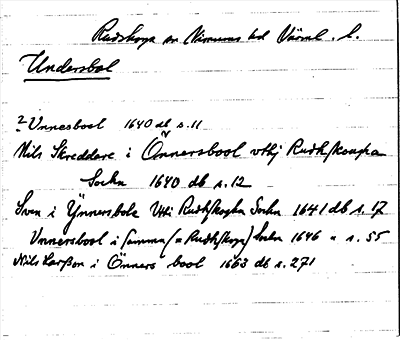 Rudskoga sn Visnums hd Värml. l.
Undersbol
? Unnesbool 1640 db s. 11
Nils Skreddere i Önnersbool vthj Rudhskougha
Sochn 1640 db s. 12
Sven i Ÿnnersbole Vthj Rudhskogha Sochn 1641 db s. 17
Unnersbool i samma (= Rudhskoga) Sochn 1646 " s. 55
Nils Larsson i Önners bool 1663 db s. 271